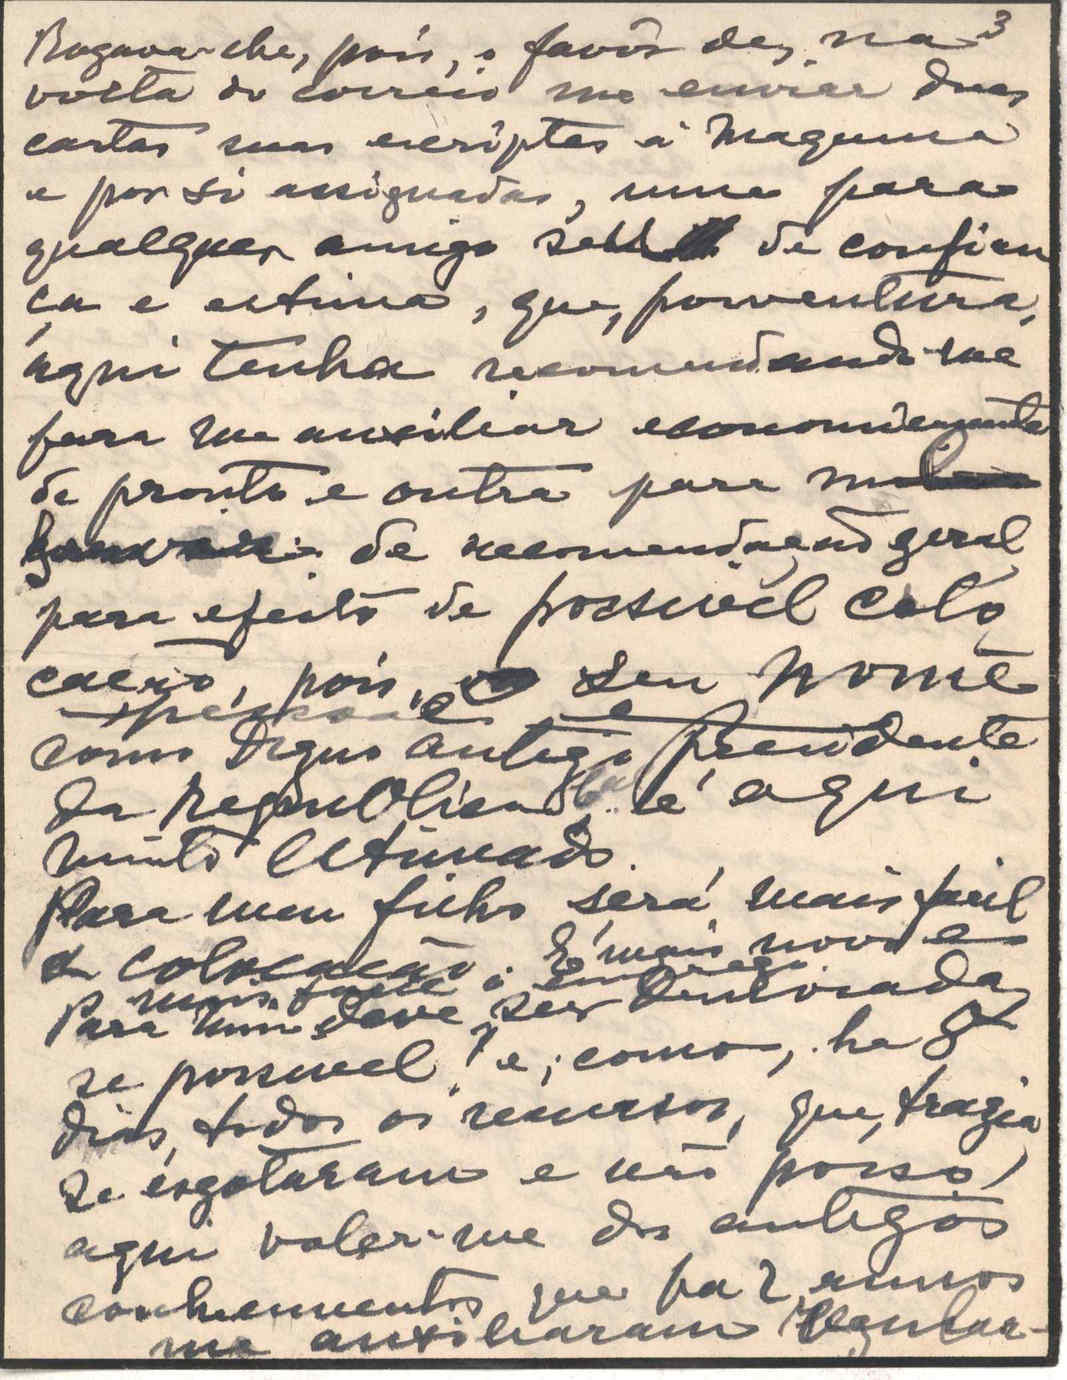 3
Rogava-lhe, pois, o favôr de, na
volta do correio me enviar duas
cartas suas escriptas á maquina
e por si assignadas, uma para
qualquer amigo seu de confian
ça e estima, que, porventura,
aqui tenha recomendando-me
para me auxiliar economicamente
de pronto e outra para
de recomendação geral
para efeito de possivel colo
cação, pois, o seu nome
como digno antigo Presidente
da Republica é aqui
muito estimado.
Para meu filho será mais facil
a colocação. É mais novo e
mais forte o emprego
Para mim deve ser demorada,
se possivel! e, como, ha 8
dias, todos os recursos, que, trazia
se esgotaram e não posso,
aqui valer-me dos antigos
conhecimentos que fa 2 annos
me auxiliaram regular-